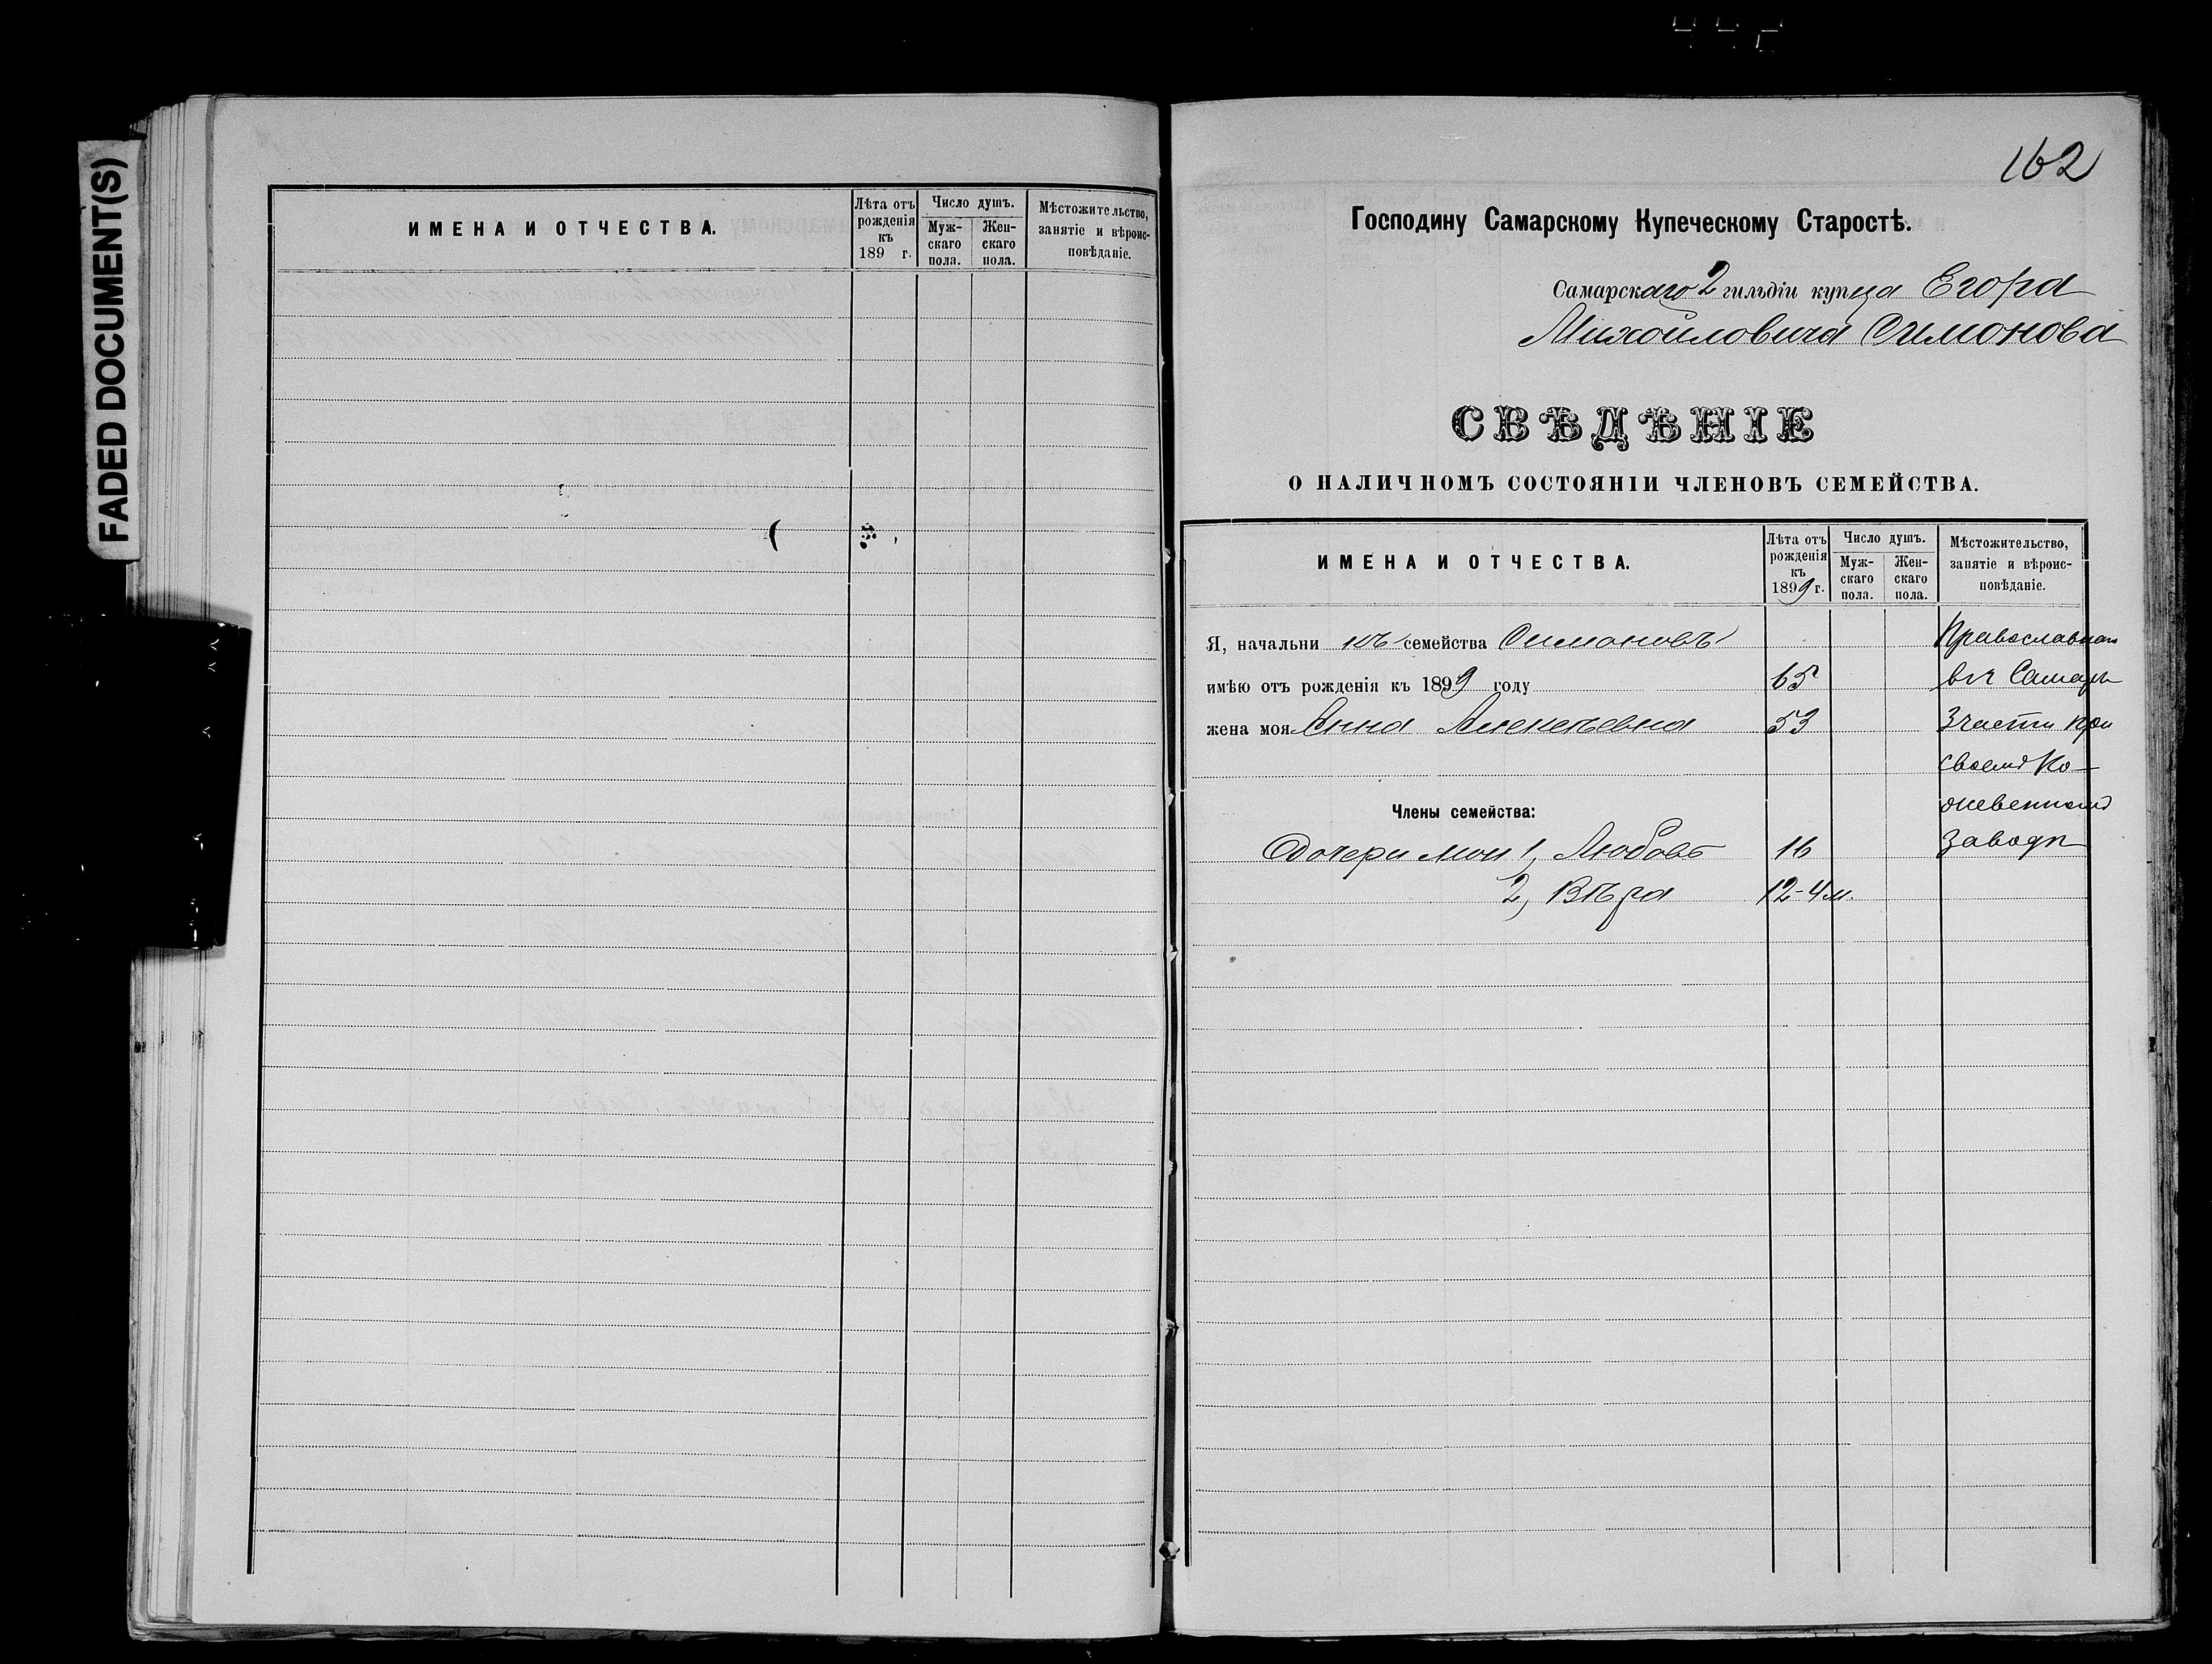 442
FADED DOCUMENT(S)
ИМЕНА И ОТЧЕСТВА.
Лѣта отъ рожденія къ 189 г.
Число душъ.
Муж-скаго пола.
Жен-скаго пола.
Мѣстожительство, занятіе и вѣроис-повѣданіе.
162
Господину Самарскому Купеческому Старостѣ.
Самарскаго 2 гильдіи купца Егора
Михайловича Симонова
СВѢДѢНІЕ
О НАЛИЧНОМЪ СОСТОЯНІИ ЧЛЕНОВЪ СЕМЕЙСТВА.
ИМЕНА И ОТЧЕСТВА.
Лѣта отъ рожденія къ 1899 г.
Число душъ.
Муж-скаго пола.
Жен-скаго пола.
Мѣстожительство, занятіе и вѣроис-повѣданіе.
Я, начальникъ семейства Симоновъ Православнаго
имѣю отъ рожденія къ 1899 году 65 в г Самарѣ
жена моя Анна Алексѣевна 53 3 части при
своемъ Ко-
Члены семейства: жевенномъ
Дочери мои 1, Любовь 16 Заводѣ
2, Вѣра 12-4 м.